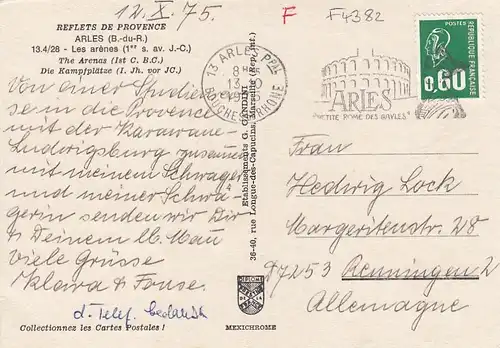 12. X. 75.
F
F4382
REFLETS DE PROVENCE
ARLES (B.-du-R.)
13.4/28 - Les arènes (1er s. av. J.-C.)
The Arenas (1st C. B.C.)
Die Kampfplätze (I. Jh. vor JC.)
Von einer Studienrei-
se in die Provence
mit der Karawane-
Ludwigsburg zusammen
mit meinem Schwager
und meiner Schwä-
gerin senden wir Dir
+ Deinem lb. Mann
viele Grüsse
Klara + Fonse.
d. Telef. bedankt
Collectionnez les Cartes Postales !
Etablissements G. GANDINI
36-40, rue Longue-des-Capucins, Marseille (Rep. Int.)
MEXICHROME
13 ARLES PPAL
8 H
13
BOUCHES DU RHONE
ARLES
"PETITE ROME DES GAULES"
POSTES
RÉPUBLIQUE FRANÇAISE
0,60
Frau
Hedwig Lock
Margeritenstr. 28
D7253 Renningen 2
Allemagne